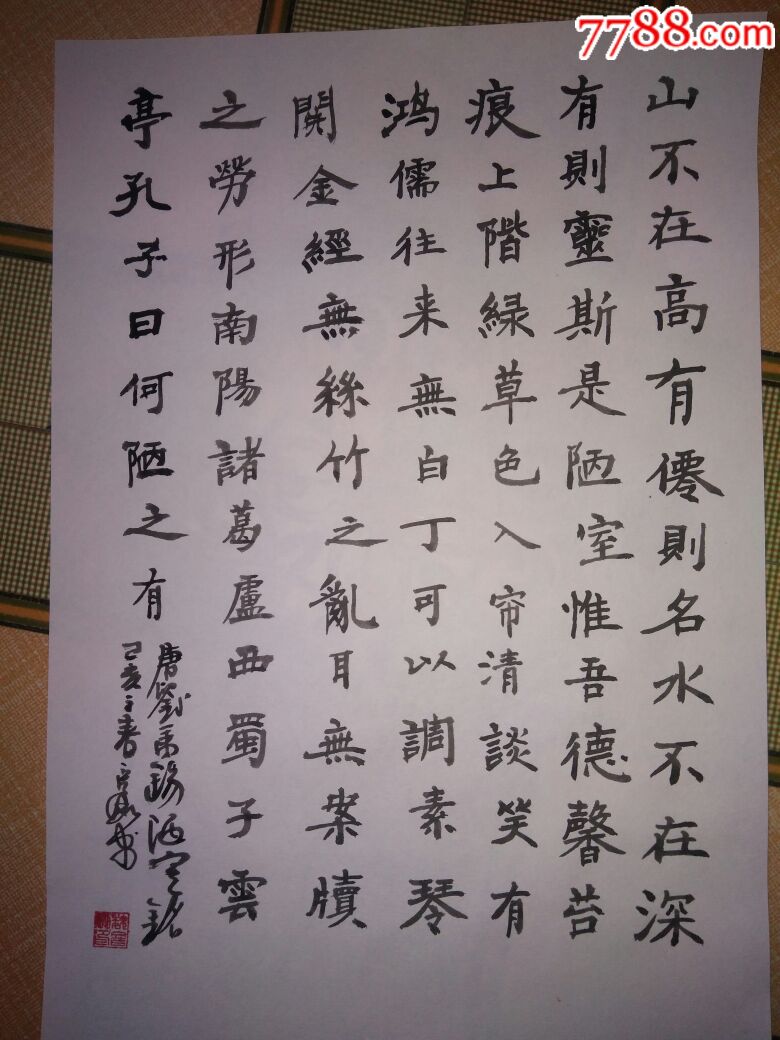 7788.com
山不在高有僊則名水不在深
有則靈斯是陋室惟吾德馨苔
痕上階緑草色入帘清談笑有
鸿儒往来無白丁可以調素琴
閱金經無絲竹之亂耳無案牘
之勞形南陽諸葛盧西蜀子雲
亭孔子曰何陋之有
唐劉禹錫陋室銘
己亥之春